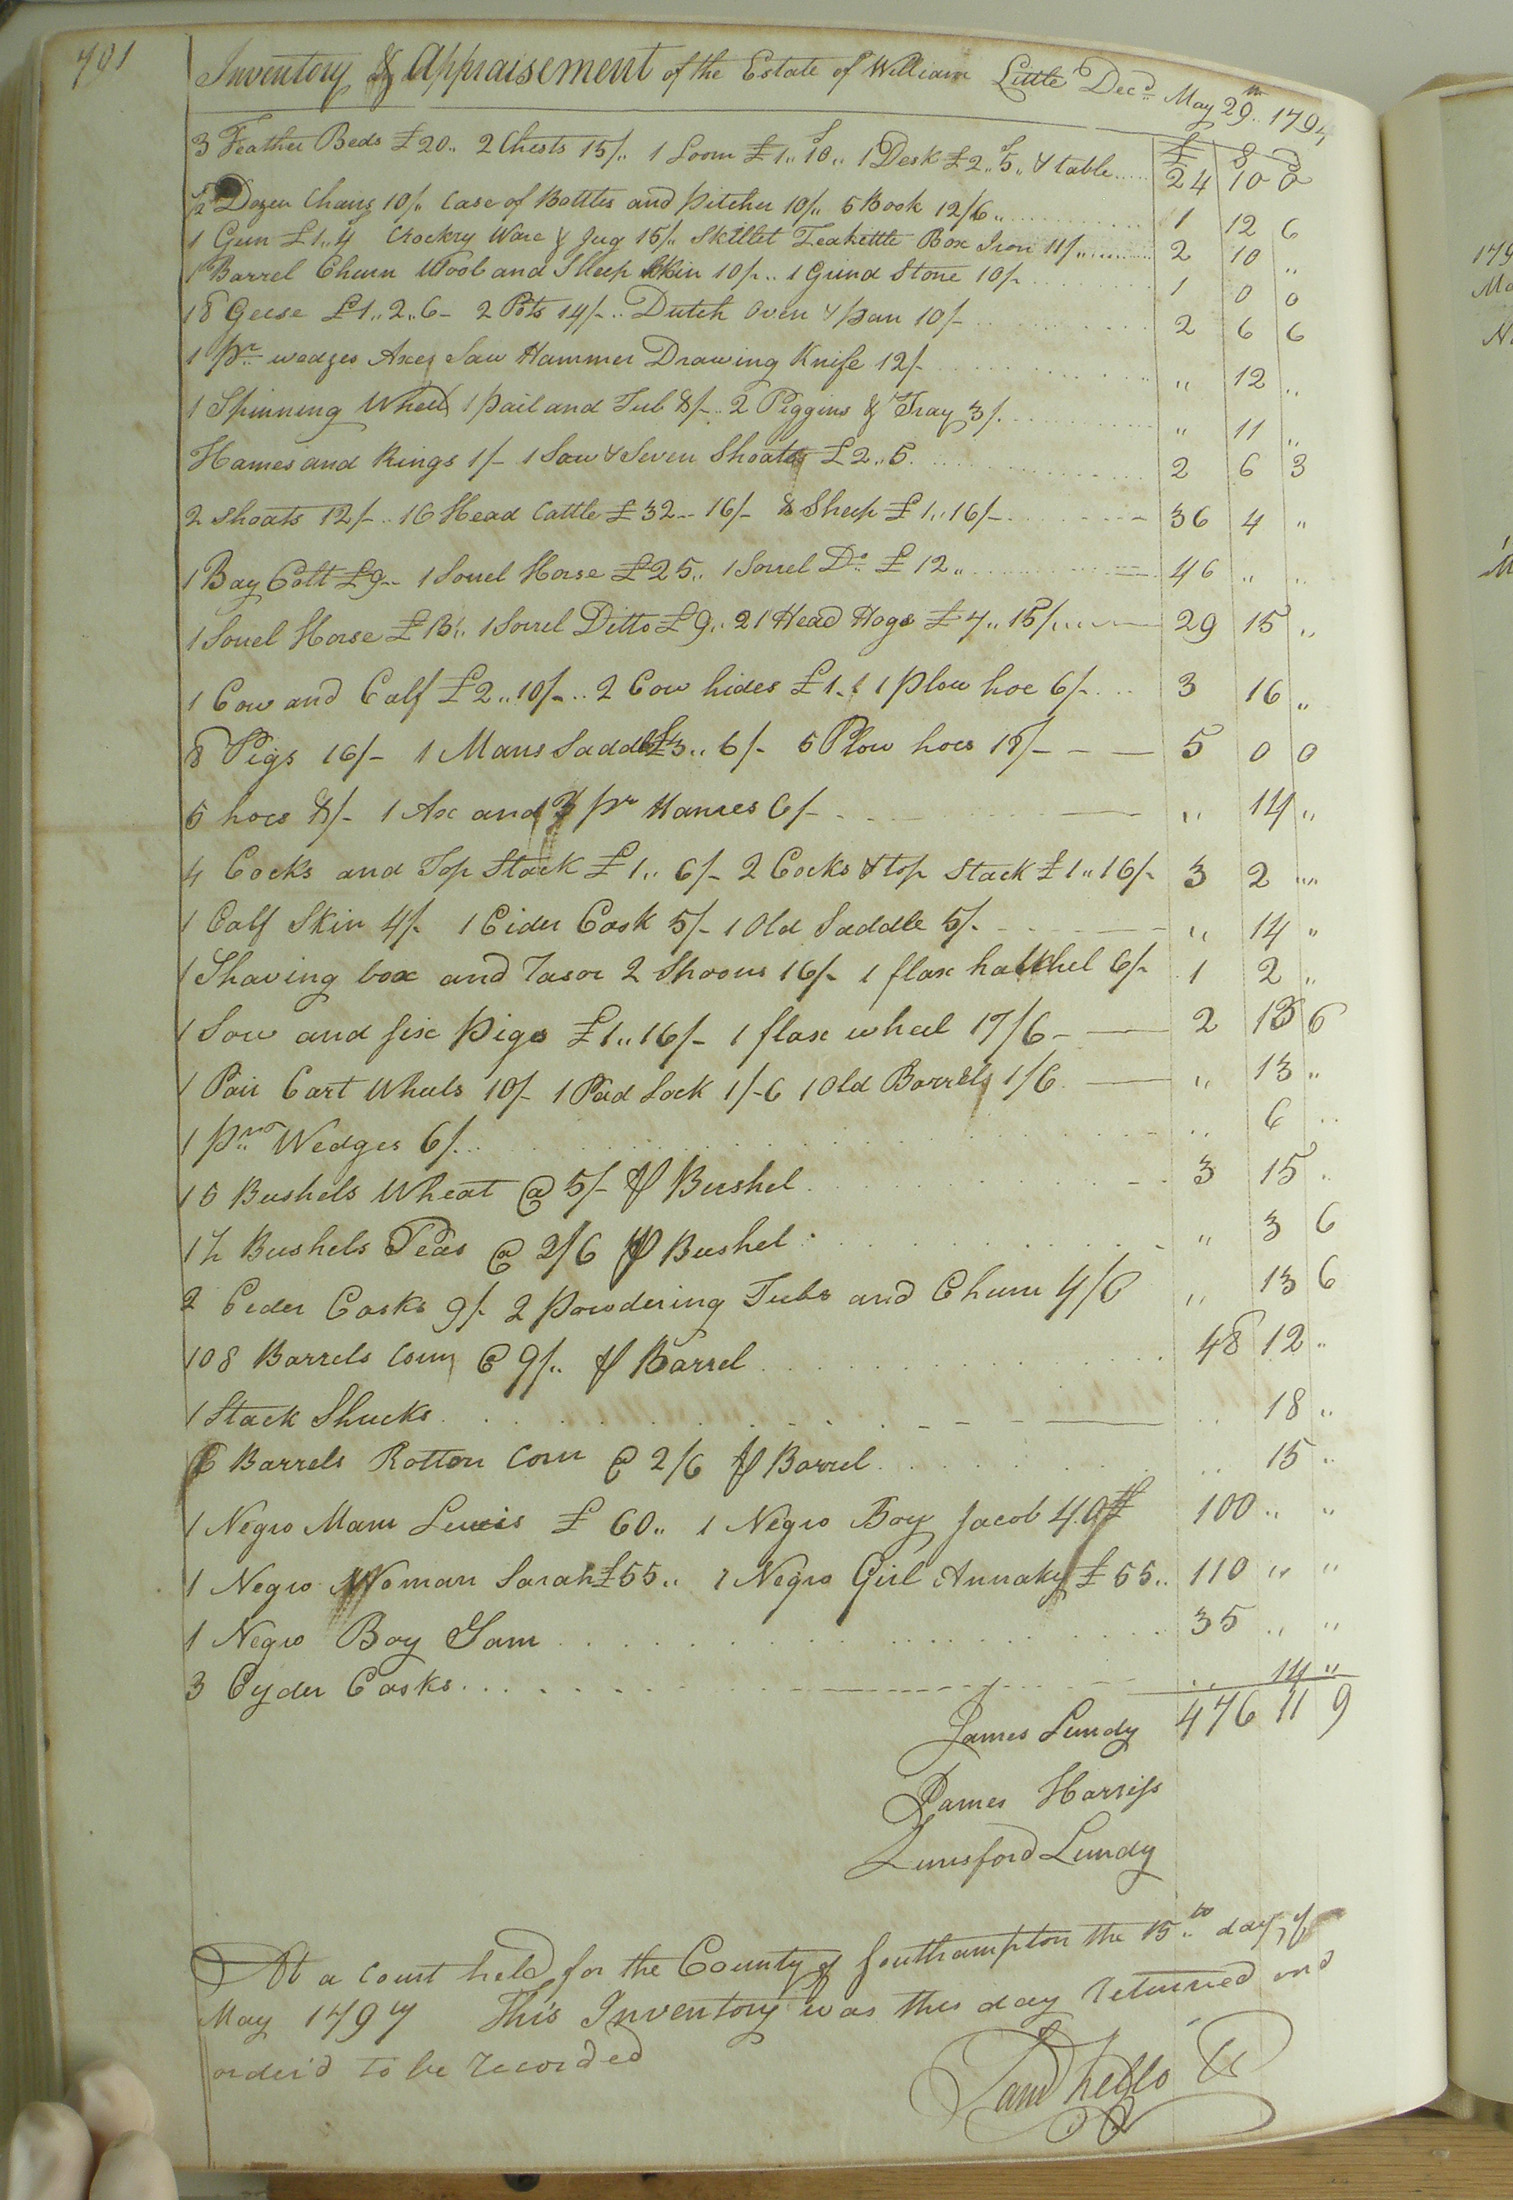 701
Inventory & Appraisement of the Estate of William Little Decd May 29th 1794
£ S D
3 Feather Beds £20.. 2 Chests 15/.. 1 Loom £1..10.. 1 Desk £2..5.. & table..... 24 10 0
1/2 Dozen Chairs 10/.. Case of Bottles and Pitcher 10/.. 5 Book 12/6.. 1 12 6
1 Gun £1..4 Crockry Ware & Jug 15/.. Skillet Teakettle Box Iron 11/.. 2 10 ..
1 Barrel Churn Wool and Sheep Skin 10/-.. 1 Grind Stone 10/- 1 0 0
18 Geese £1..2..6- 2 Pots 14/-.. Dutch Oven & pan 10/- 2 6 6
1 pr wedges Axes Saw Hammer Drawing Knife 12/- " 12 ..
1 Spinning Wheel 1 pail and Tub 8/-.. 2 Piggins & Tray 3/. " 11 ..
Hames and Rings 1/- 1 Sow & Seven Shoats £2..5. 2 6 3
2 Shoats 12/-.. 16 Head Cattle £32.. 16/- 8 Sheep £1..16/- 36 4 "
1 Bay Colt £9.. 1 Sorrel Horse £25.. 1 Sorrel Do £12.. 46 " ..
1 Sorrel Horse £ 1 Sorrel Ditto £9.. 21 Head Hogs £7..15/.. 29 15 ..
1 Cow and Calf £2..10/-.. 2 Cow hides £1.. 1 plow hoe 6/-... 3 16 "
8 Pigs 16/- 1 Mans Saddle £3..6/- 5 Plow hoes 18/- - — 5 0 0
5 hoes 8/- 1 Ax and 3 pr Hames 6/- " 14 "
4 Cocks and Top Stack £1..6/- 2 Cocks & top Stack £1..16/- 3 2 "
1 Calf Skin 4/- 1 Cider Cask 5/- 1 Old Saddle 5/- " 14 "
1 Shaving box and rasor 2 Spoons 16/- 1 flax hatchel 6/- 1 2 "
1 Sow and six Pigs £1..16/- 1 flax wheel 17/6 - — 2 13 6
1 Pair Cart Wheels 10/- 1 Pad Lock 1/-6 1 Old Barrels 1/6 — " 13 "
1 pr Wedges 6/... .. 6 ..
15 Bushels Wheat @ 5/- ⅌ Bushel 3 15 .
1½ Bushels Peas @ 2/6 ⅌ Bushel " 3 6
2 Ceder Casks 9/- 2 powdering Tubs and Churn 4/6 " 13 6
108 Barrels Corn @ 9/.. ⅌ Barrel 48 12 ..
1 Stack Shucks .. 18 "
6 Barrels Rotton Corn @ 2/6 ⅌ Barrel .. 15 ..
1 Negro Man Lewis £ 60.. 1 Negro Boy Jacob 40£ 100 .. "
1 Negro Woman Sarah £55.. 1 Negro Girl Annaky £55.. 110 " "
1 Negro Boy Sam 35 .. "
3 Cyder Casks .. 14 "
476 11 9
James Lundy
James Harriss
Lunsford Lundy
At a Court held for the County of Southampton the 15th day of
May 1797 This Inventory was this day returned and
order'd to be recorded
Saml Kello CC